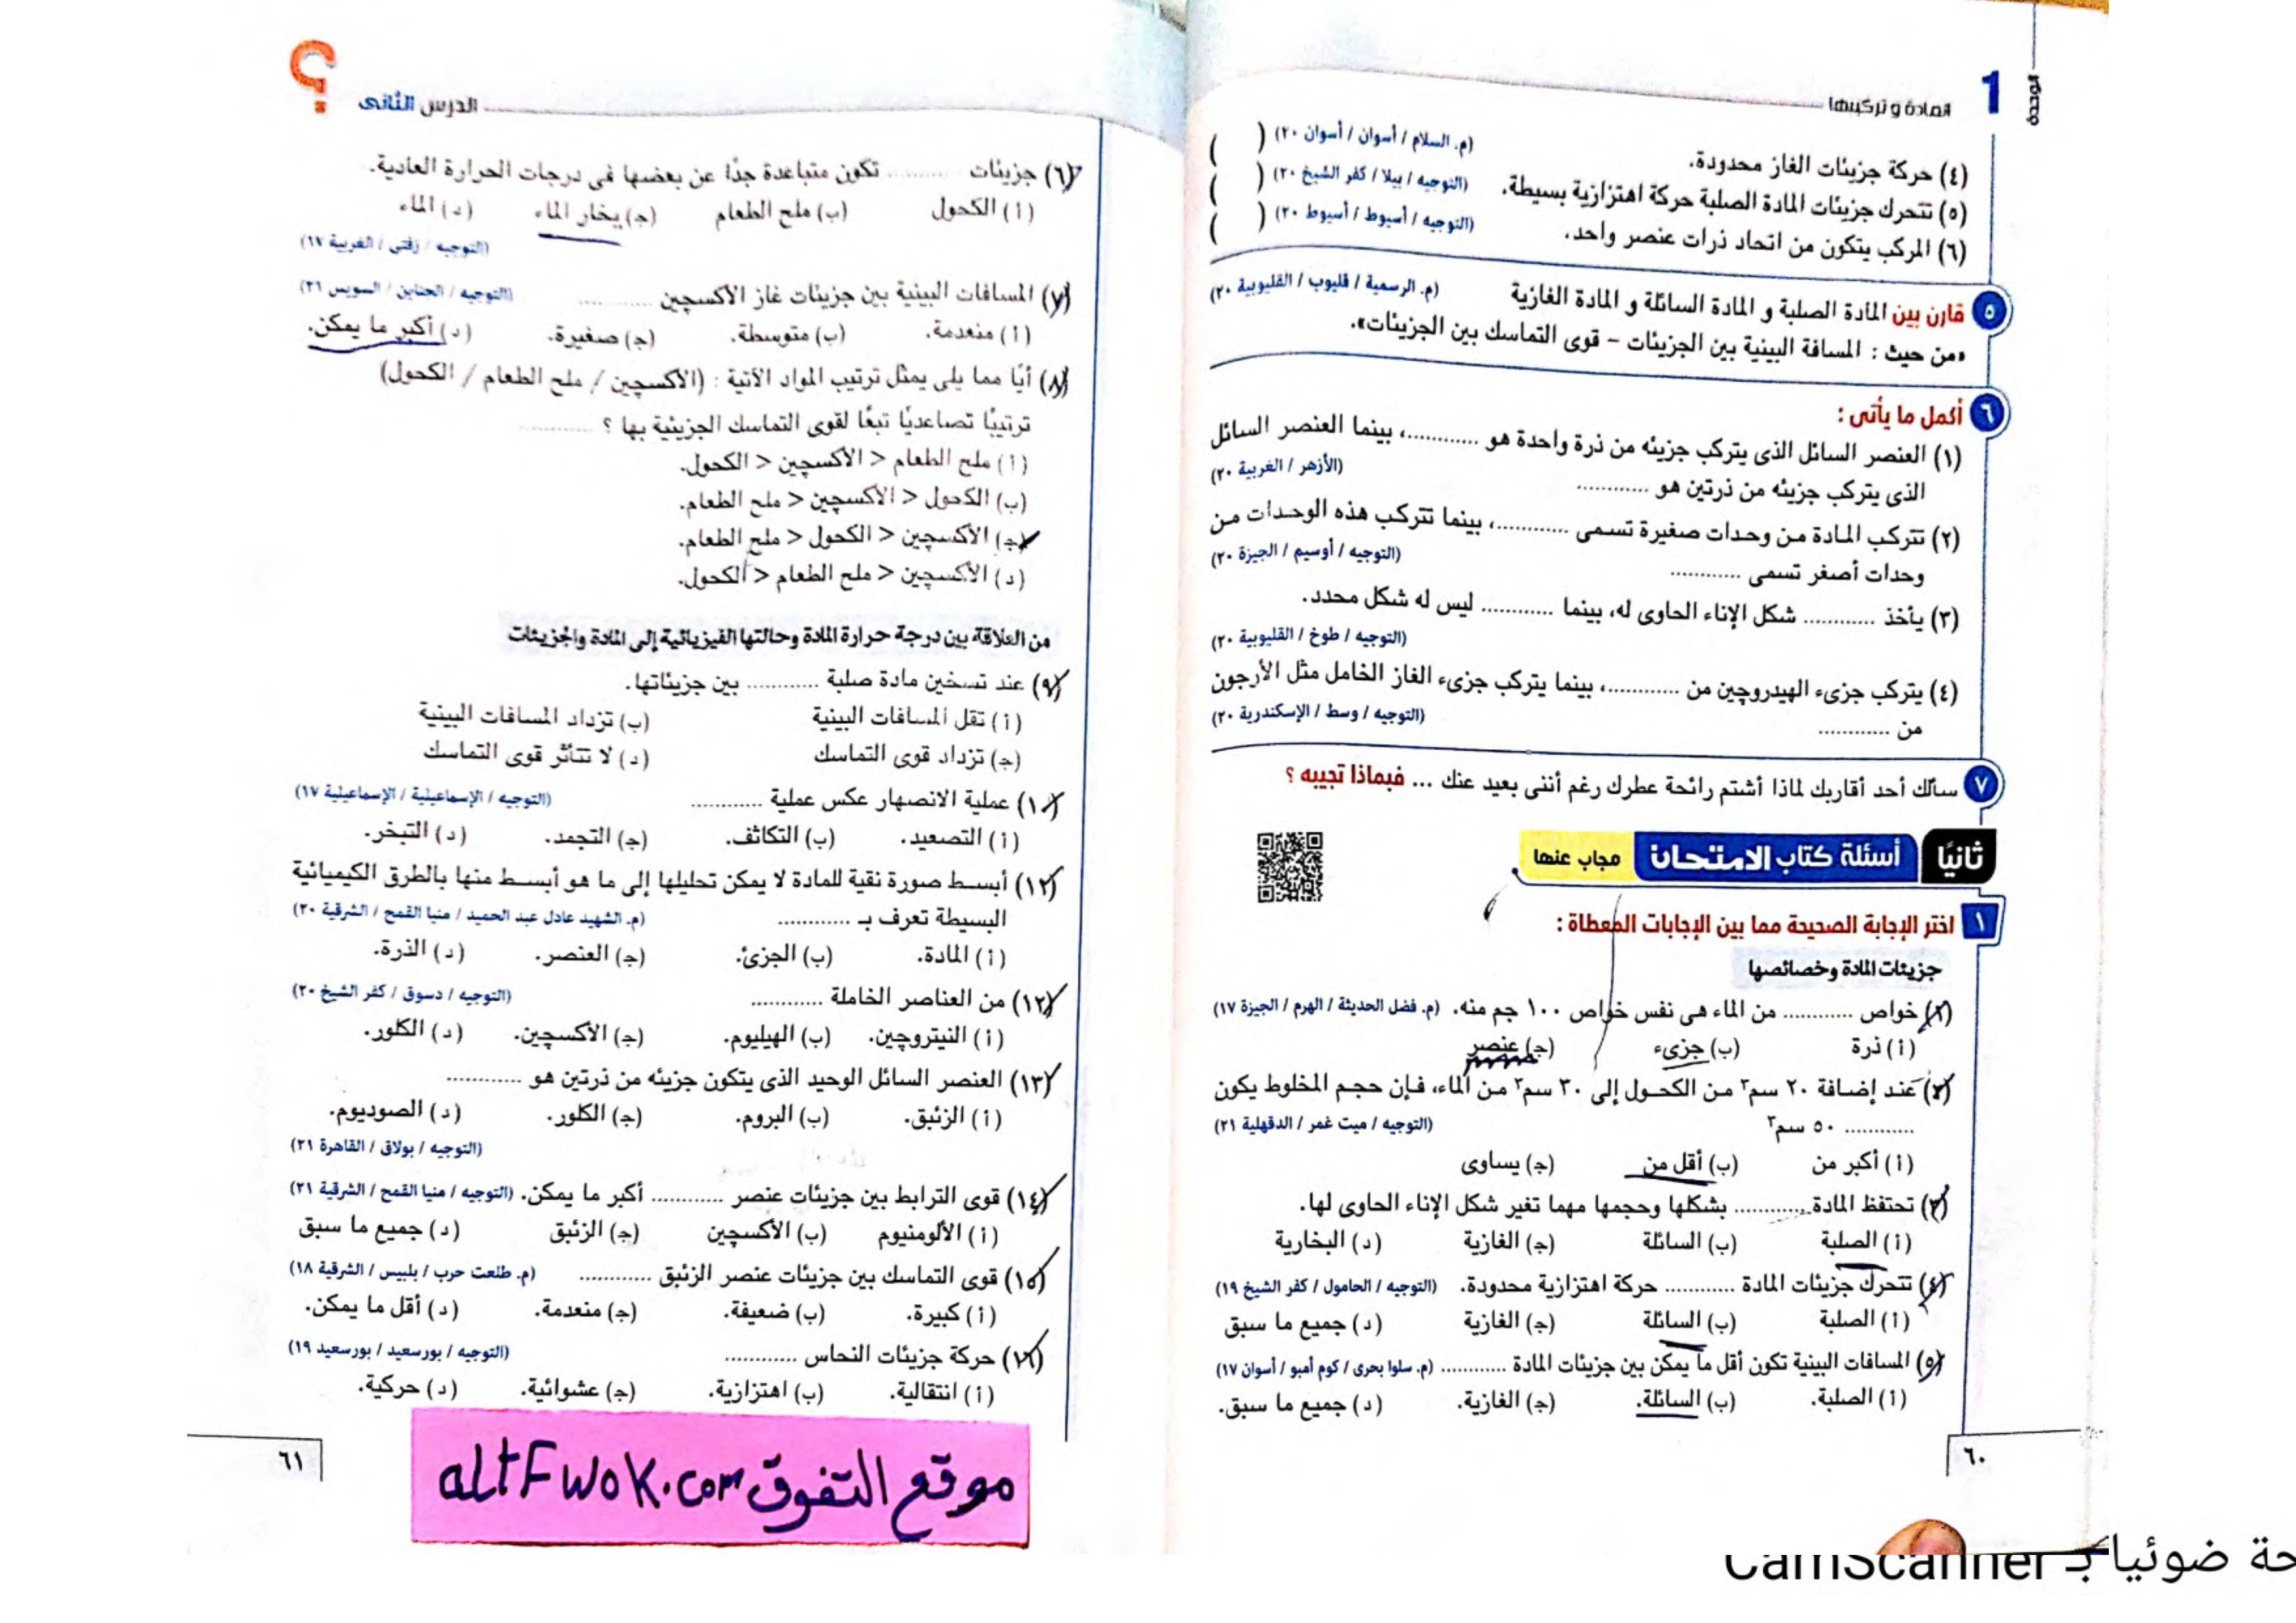 الوحدة
1
المادة و تركيبها
(٤) حركة جزيئات الغاز محدودة. (م. السلام / أسوان / أسوان ٢٠) ( )
(٥) تتحرك جزيئات المادة الصلبة حركة اهتزازية بسيطة. (التوجيه / بيلا / كفر الشيخ ٢٠) ( )
(٦) المركب يتكون من اتحاد ذرات عنصر واحد. (التوجيه / أسيوط / أسيوط ٢٠) ( )
٥ قارن بين المادة الصلبة و المادة السائلة و المادة الغازية (م. الرسمية / قليوب / القليوبية ٢٠)
«من حيث : المسافة البينية بين الجزيئات – قوى التماسك بين الجزيئات».
٦ أكمل ما يأتى :
(١) العنصر السائل الذى يتركب جزيئه من ذرة واحدة هو ............، بينما العنصر السائل
الذى يتركب جزيئه من ذرتين هو ............ (الأزهر / الغربية ٢٠)
(٢) تتركب المادة من وحدات صغيرة تسمى ............، بينما تتركب هذه الوحدات من
وحدات أصغر تسمى ............ (التوجيه / أوسيم / الجيزة ٢٠)
(٣) يأخذ ............ شكل الإناء الحاوى له، بينما ............ ليس له شكل محدد.
(التوجيه / طوخ / القليوبية ٢٠)
(٤) يتركب جزىء الهيدروچين من ............، بينما يتركب جزىء الغاز الخامل مثل الأرجون
من ............ (التوجيه / وسط / الإسكندرية ٢٠)
٧ سألك أحد أقاربك لماذا أشتم رائحة عطرك رغم أننى بعيد عنك ... فبماذا تجيبه ؟
ثانيًا أسئلة كتاب الامتحان مجاب عنها
١ اختر الإجابة الصحيحة مما بين الإجابات المعطاة :
جزيئات المادة وخصائصها
(١) خواص ............ من الماء هى نفس خواص ١٠٠ جم منه. (م. فضل الحديثة / الهرم / الجيزة ١٧)
(أ) ذرة (ب) جزىء (جـ) عنصر
(٢) عند إضافة ٢٠ سم٣ من الكحول إلى ٣٠ سم٣ من الماء، فإن حجم المخلوط يكون
............ ٥٠ سم٣ (التوجيه / ميت غمر / الدقهلية ٢١)
(أ) أكبر من (ب) أقل من (جـ) يساوى
(٣) تحتفظ المادة ............ بشكلها وحجمها مهما تغير شكل الإناء الحاوى لها.
(أ) الصلبة (ب) السائلة (جـ) الغازية (د) البخارية
(٤) تتحرك جزيئات المادة ............ حركة اهتزازية محدودة. (التوجيه / الحامول / كفر الشيخ ١٩)
(أ) الصلبة (ب) السائلة (جـ) الغازية (د) جميع ما سبق
(٥) المسافات البينية تكون أقل ما يمكن بين جزيئات المادة ............ (م. سلوا بحرى / كوم أمبو / أسوان ١٧)
(أ) الصلبة. (ب) السائلة. (جـ) الغازية. (د) جميع ما سبق.
٦٠
الدرس الثانى
؟
(٦) جزيئات ............ تكون متباعدة جدًا عن بعضها فى درجات الحرارة العادية.
(أ) الكحول (ب) ملح الطعام (جـ) بخار الماء (د) الماء
(التوجيه / زفتى / الغربية ١٧)
(٧) المسافات البينية بين جزيئات غاز الأكسچين ............ (التوجيه / الجناين / السويس ٢١)
(أ) منعدمة. (ب) متوسطة. (جـ) صغيرة. (د) أكبر ما يمكن.
(٨) أيًا مما يلى يمثل ترتيب المواد الآتية : (الأكسچين / ملح الطعام / الكحول)
ترتيبًا تصاعديًا تبعًا لقوى التماسك الجزيئية بها ؟ ............
(أ) ملح الطعام < الأكسچين < الكحول.
(ب) الكحول < الأكسچين < ملح الطعام.
(جـ) الأكسچين < الكحول < ملح الطعام.
(د) الأكسچين < ملح الطعام < الكحول.
من العلاقة بين درجة حرارة المادة وحالتها الفيزيائية إلى المادة والجزيئات
(٩) عند تسخين مادة صلبة ............ بين جزيئاتها.
(أ) تقل المسافات البينية (ب) تزداد المسافات البينية
(جـ) تزداد قوى التماسك (د) لا تتأثر قوى التماسك
(١٠) عملية الانصهار عكس عملية ............ (التوجيه / الإسماعيلية / الإسماعيلية ١٧)
(أ) التصعيد. (ب) التكاثف. (جـ) التجمد. (د) التبخر.
(١١) أبسط صورة نقية للمادة لا يمكن تحليلها إلى ما هو أبسط منها بالطرق الكيميائية
البسيطة تعرف بـ ............ (م. الشهيد عادل عبد الحميد / منيا القمح / الشرقية ٢٠)
(أ) المادة. (ب) الجزئ. (جـ) العنصر. (د) الذرة.
(١٢) من العناصر الخاملة ............ (التوجيه / دسوق / كفر الشيخ ٢٠)
(أ) النيتروچين. (ب) الهيليوم. (جـ) الأكسچين. (د) الكلور.
(١٣) العنصر السائل الوحيد الذى يتكون جزيئه من ذرتين هو ............
(أ) الزئبق. (ب) البروم. (جـ) الكلور. (د) الصوديوم.
(التوجيه / بولاق / القاهرة ٢١)
(١٤) قوى الترابط بين جزيئات عنصر ............ أكبر ما يمكن. (التوجيه / منيا القمح / الشرقية ٢١)
(أ) الألومنيوم (ب) الأكسچين (جـ) الزئبق (د) جميع ما سبق
(١٥) قوى التماسك بين جزيئات عنصر الزئبق ............ (م. طلعت حرب / بلبيس / الشرقية ١٨)
(أ) كبيرة. (ب) ضعيفة. (جـ) منعدمة. (د) أقل ما يمكن.
(١٦) حركة جزيئات النحاس ............ (التوجيه / بورسعيد / بورسعيد ١٩)
(أ) انتقالية. (ب) اهتزازية. (جـ) عشوائية. (د) حركية.
موقع التفوق altFwok.com
٦١
حة ضوئيا بـ CamScanner